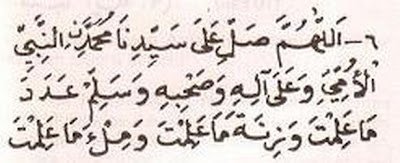 ٦- اَللّٰهُمَّ صَلِّ عَلَى سَيِّدِنَا مُحَمَّدِنِ النَّبِيِّ
الْأُمِّيِّ وَعَلَى آلِهِ وَصَحْبِهِ وَسَلِّمْ عَدَدَ
مَا عَلِمْتَ وَزِنَةَ مَا عَلِمْتَ وَمِلْءَ مَا عَلِمْتَ